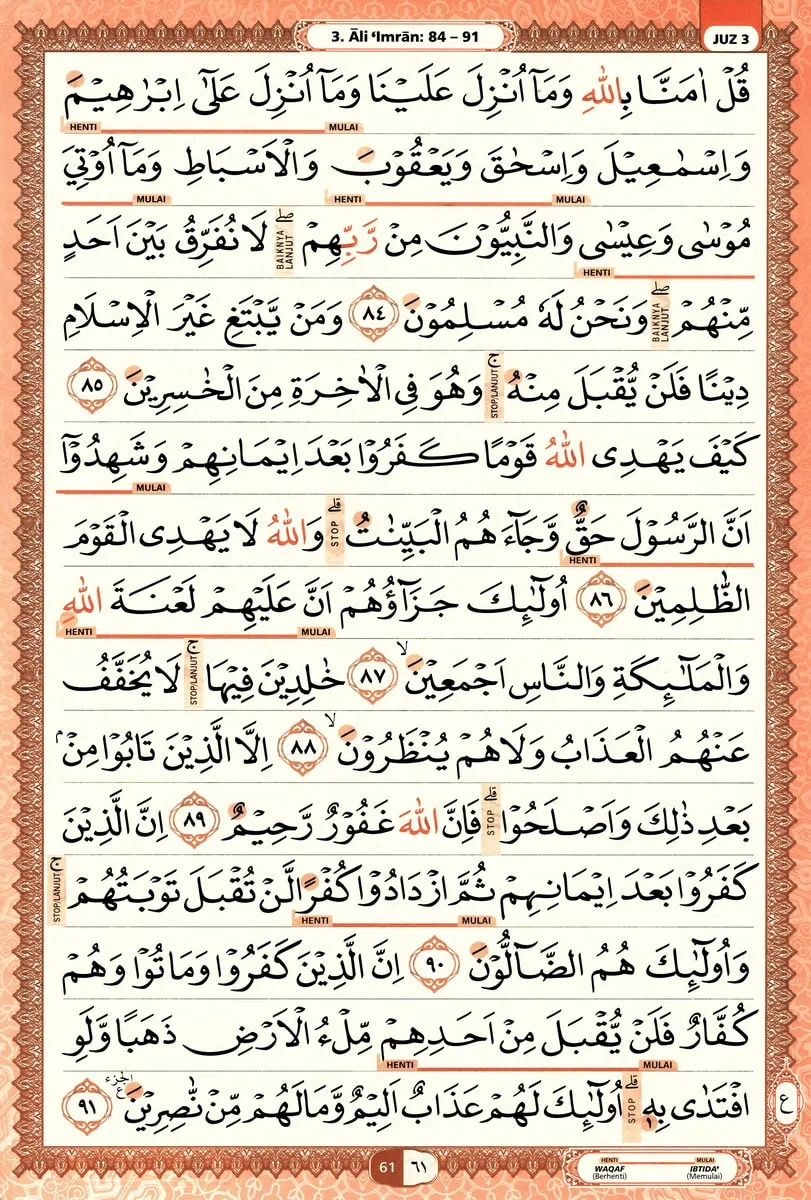 3. Āli ‘Imrān: 84 – 91
JUZ 3
قُلْ اٰمَنَّا بِاللّٰهِ وَمَآ اُنْزِلَ عَلَيْنَا وَمَآ اُنْزِلَ عَلٰٓى اِبْرٰهِيْمَ
HENTI MULAI
وَاِسْمٰعِيْلَ وَاِسْحٰقَ وَيَعْقُوْبَ وَالْاَسْبَاطِ وَمَآ اُوْتِيَ
MULAI HENTI MULAI
مُوْسٰى وَعِيْسٰى وَالنَّبِيُّوْنَ مِنْ رَّبِّهِمْ ۖ لَا نُفَرِّقُ بَيْنَ اَحَدٍ
BAIKNYA LANJUT
HENTI
مِّنْهُمْ ۖ وَنَحْنُ لَهٗ مُسْلِمُوْنَ ﴿٨٤﴾ وَمَنْ يَّبْتَغِ غَيْرَ الْاِسْلَامِ
BAIKNYA LANJUT
دِيْنًا فَلَنْ يُّقْبَلَ مِنْهُ ۚ وَهُوَ فِى الْاٰخِرَةِ مِنَ الْخٰسِرِيْنَ ﴿٨٥﴾
STOP/LANJUT
كَيْفَ يَهْدِى اللّٰهُ قَوْمًا كَفَرُوْا بَعْدَ اِيْمَانِهِمْ وَشَهِدُوْٓا
MULAI
اَنَّ الرَّسُوْلَ حَقٌّ وَّجَاۤءَهُمُ الْبَيِّنٰتُ ۗ وَاللّٰهُ لَا يَهْدِى الْقَوْمَ
STOP
HENTI
الظّٰلِمِيْنَ ﴿٨٦﴾ اُولٰۤىِٕكَ جَزَاۤؤُهُمْ اَنَّ عَلَيْهِمْ لَعْنَةَ اللّٰهِ
HENTI MULAI
وَالْمَلٰۤىِٕكَةِ وَالنَّاسِ اَجْمَعِيْنَ ۙ ﴿٨٧﴾ خٰلِدِيْنَ فِيْهَا ۚ لَا يُخَفَّفُ
STOP/LANJUT
عَنْهُمُ الْعَذَابُ وَلَا هُمْ يُنْظَرُوْنَ ۙ ﴿٨٨﴾ اِلَّا الَّذِيْنَ تَابُوْا مِنْۢ
بَعْدِ ذٰلِكَ وَاَصْلَحُوْا ۗ فَاِنَّ اللّٰهَ غَفُوْرٌ رَّحِيْمٌ ﴿٨٩﴾ اِنَّ الَّذِيْنَ
STOP
كَفَرُوْا بَعْدَ اِيْمَانِهِمْ ثُمَّ ازْدَادُوْا كُفْرًا لَّنْ تُقْبَلَ تَوْبَتُهُمْ ۚ
STOP/LANJUT
HENTI MULAI
وَاُولٰۤىِٕكَ هُمُ الضَّاۤلُّوْنَ ﴿٩٠﴾ اِنَّ الَّذِيْنَ كَفَرُوْا وَمَاتُوْا وَهُمْ
كُفَّارٌ فَلَنْ يُّقْبَلَ مِنْ اَحَدِهِمْ مِّلْءُ الْاَرْضِ ذَهَبًا وَّلَوِ
HENTI MULAI
افْتَدٰى بِهٖ ۗ اُولٰۤىِٕكَ لَهُمْ عَذَابٌ اَلِيْمٌ وَّمَا لَهُمْ مِّنْ نّٰصِرِيْنَ ﴿٩١﴾
STOP
الجزء
ع
ع
61 ٦١
HENTI MULAI
WAQAF IBTIDA'
(Berhenti) (Memulai)